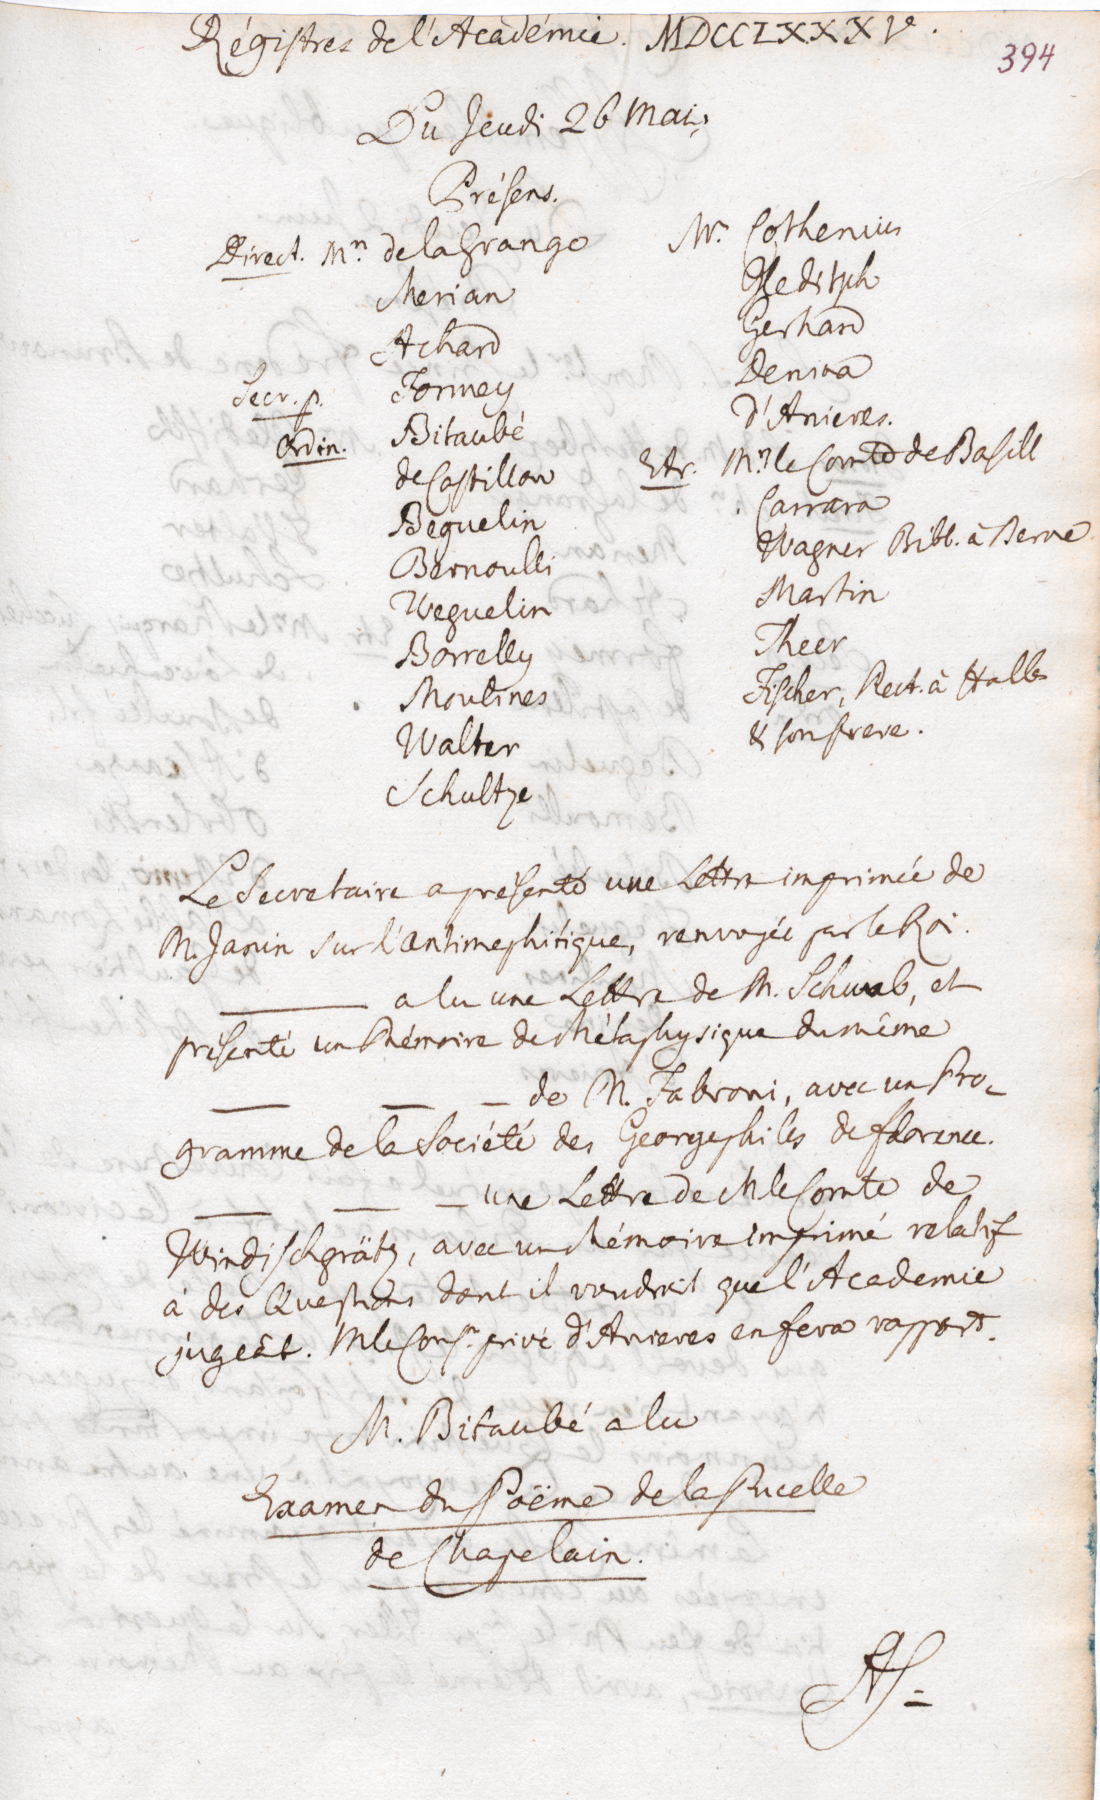 Régistres de l'Académie. MDCCLXXXV.
394
Du Jeudi 26 Mai,
Présens.
Direct. Mrs. de la Grange
Merian
Achard
Secr. p. Formey
Ordin. Bitaubé
de Castillon
Beguelin
Bernoulli
Weguelin
Borrelly
Moulines
Walter
Schultze
Mrs. Cothenius
Gleditsch
Gerhard
Denina
d'Anieres.
Etr. Mrs. le Comte de Basill
Carrara
Wagner Bibl. à Berne
Martin
Theer
Fischer, Rect. à Halle
& son frere.
Le Secretaire a présenté une Lettre imprimée de
M. Janin sur l'antimephitique, renvoyée par le Roi.
——— a lu une Lettre de M. Schwab, et
présenté un Mémoire de Métaphysique du même
— — — de M. Fabroni, avec un Pro-
gramme de la Société des Georgephiles de florence.
— — — une Lettre de M le Comte de
Windischgrätz, avec un Mémoire imprimé relatif
à des Questions dont il voudroit que l'Academie
jugeât. M le Consr. privé d'Anieres en fera rapport.
M. Bitaubé a lu
Examen du Poëme de la Pucelle
de Chapelain.